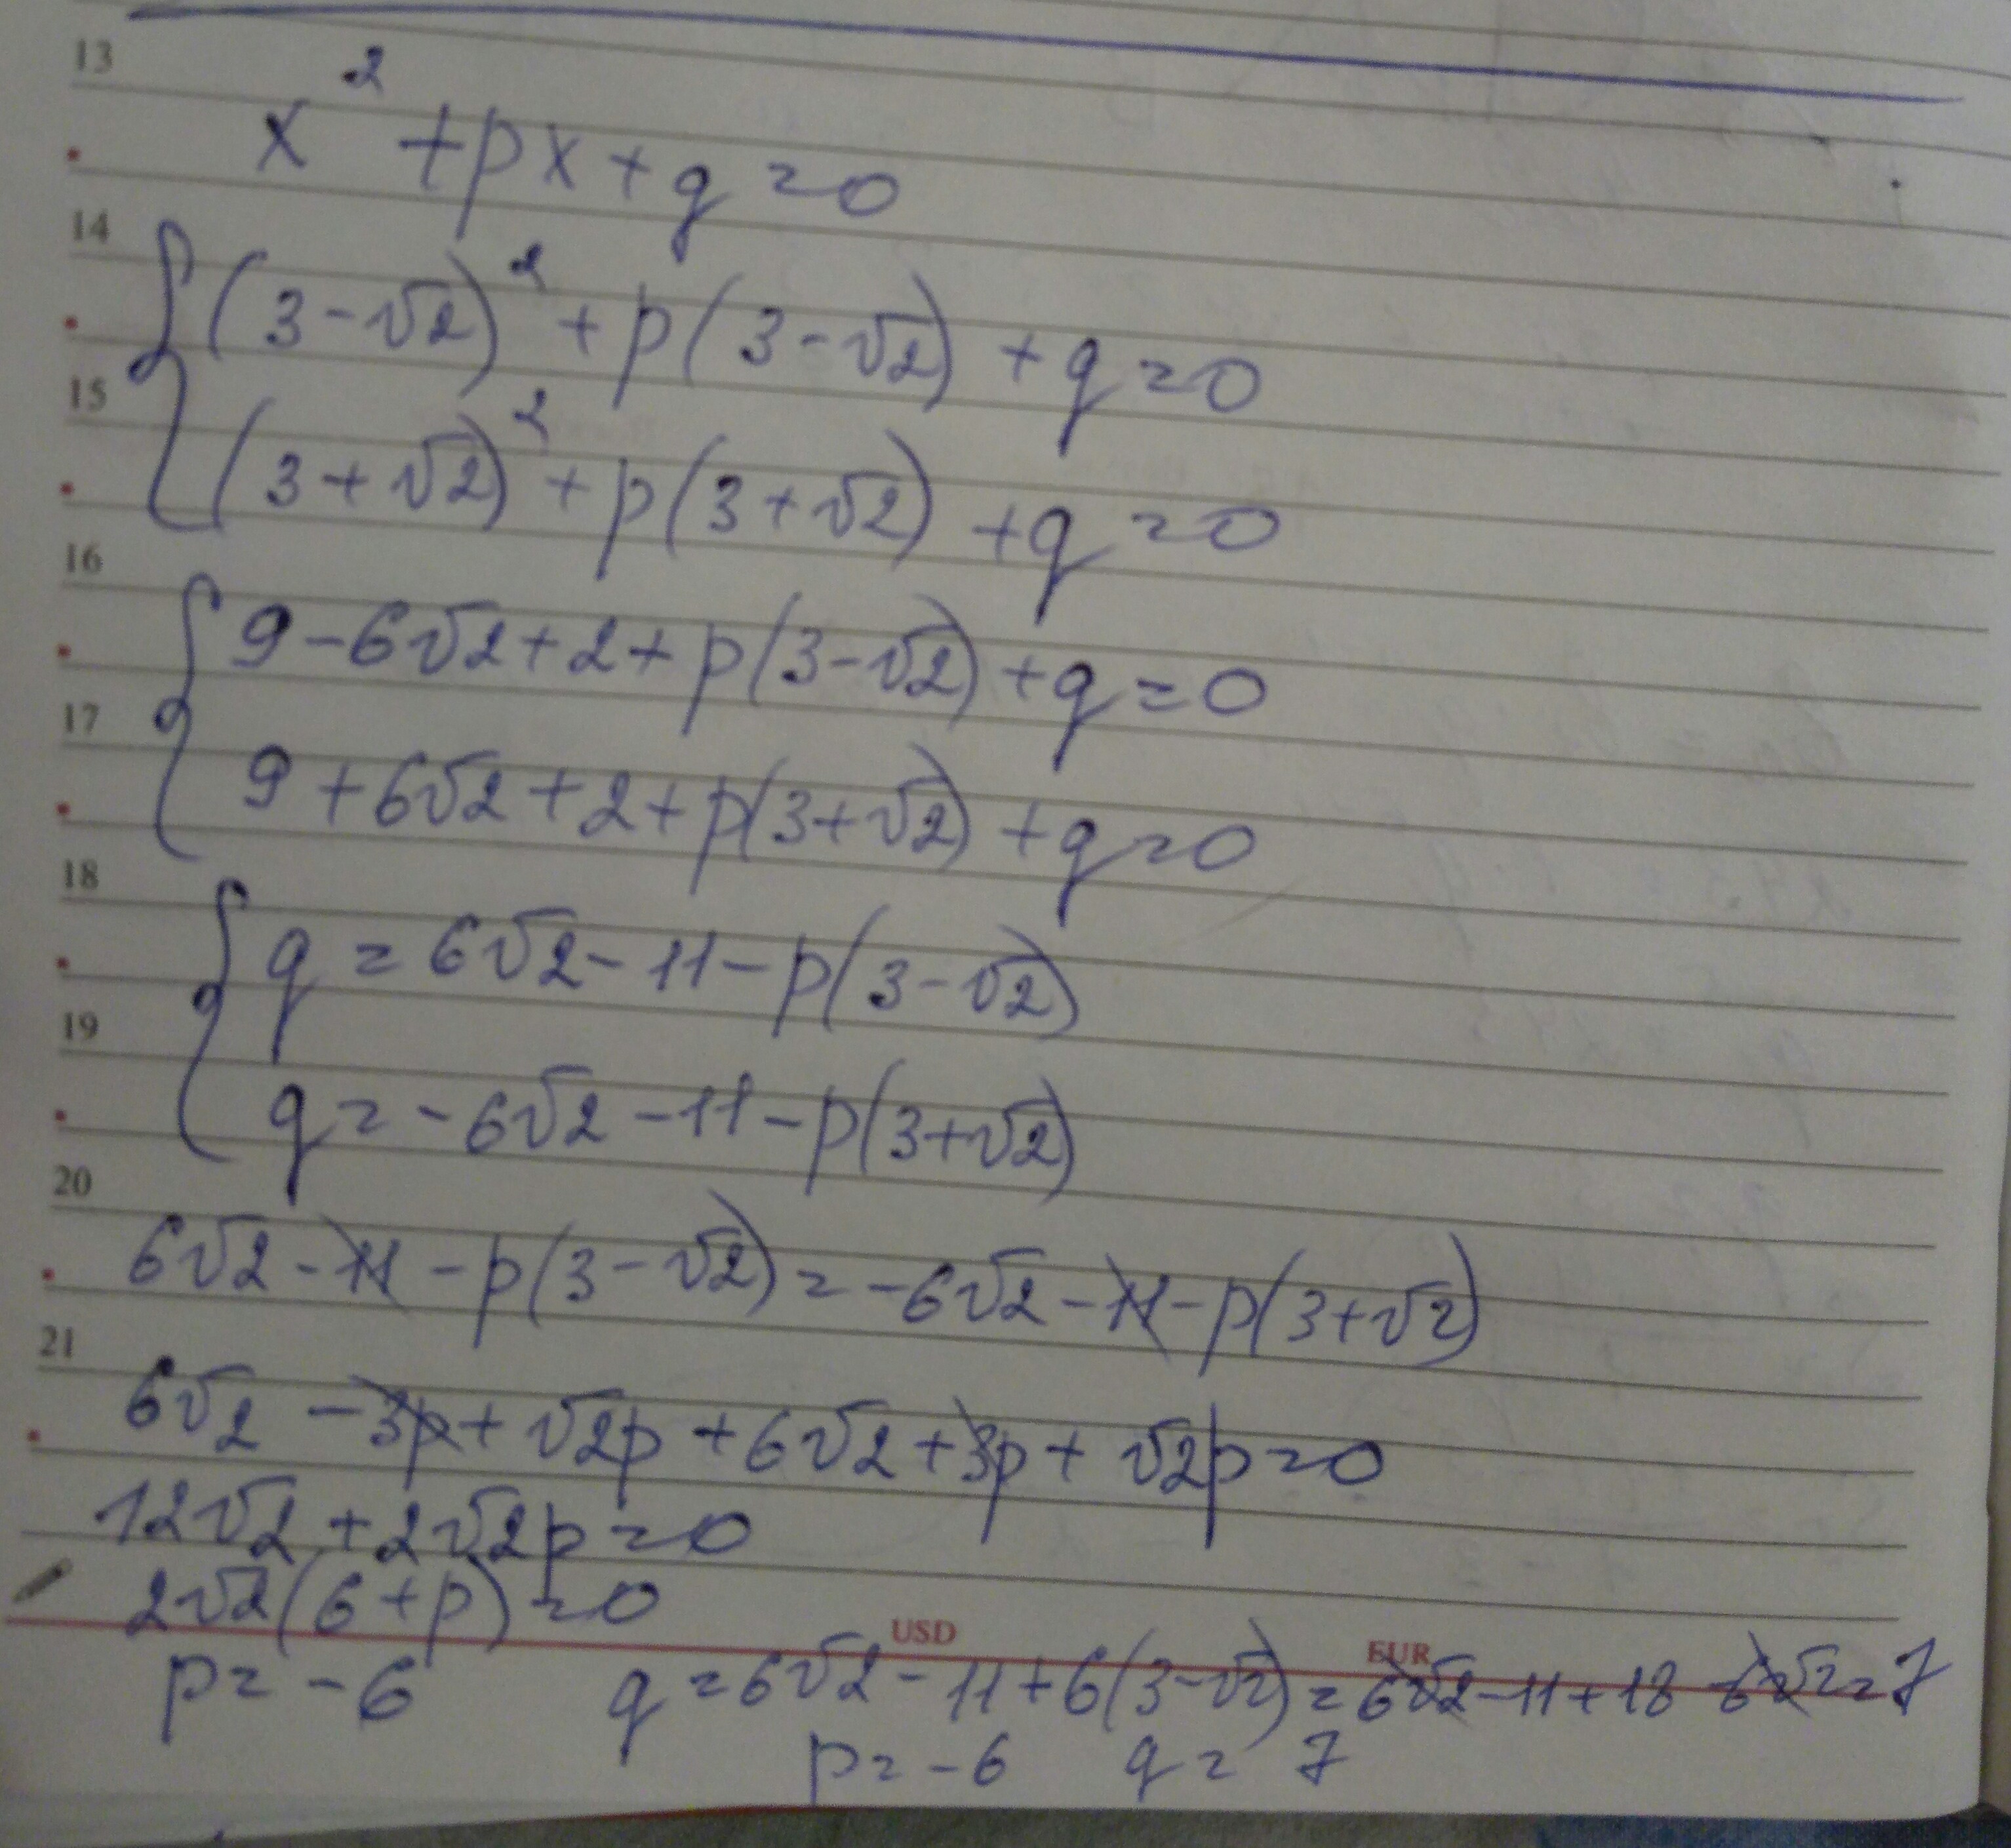 13
x² + px + q = 0
14
{ (3 - √2)² + p(3 - √2) + q = 0
15
(3 + √2)² + p(3 + √2) + q = 0
16
{ 9 - 6√2 + 2 + p(3 - √2) + q = 0
17
9 + 6√2 + 2 + p(3 + √2) + q = 0
18
{ q = 6√2 - 11 - p(3 - √2)
19
q = - 6√2 - 11 - p(3 + √2)
20
6√2 - 11 - p(3 - √2) = - 6√2 - 11 - p(3 + √2)
21
6√2 - 3p + √2p + 6√2 + 3p + √2p = 0
12√2 + 2√2p = 0
2√2(6 + p) = 0
USD EUR
p = - 6 q = 6√2 - 11 + 6(3 - √2) = 6√2 - 11 + 18 - 6√2 = 7
p = - 6 q = 7